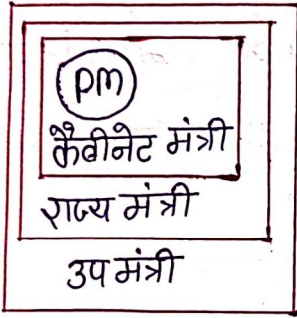 PM
कैबीनेट मंत्री
राज्य मंत्री
उप मंत्री